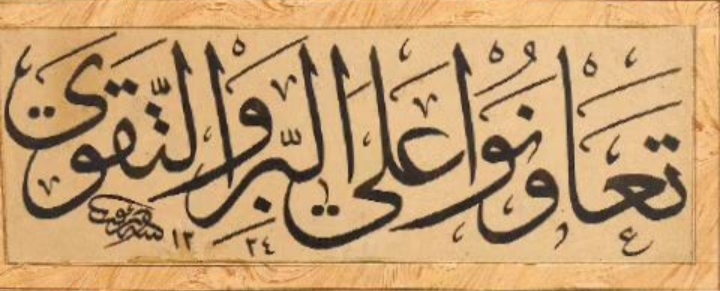 تعاونوا على البر والتقوى
١٣٢٤